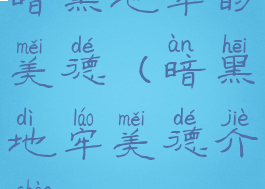 暗黑地牢的
měi dé àn hēi
美德（暗黑
dì láo měi dé jiè
地牢美德介